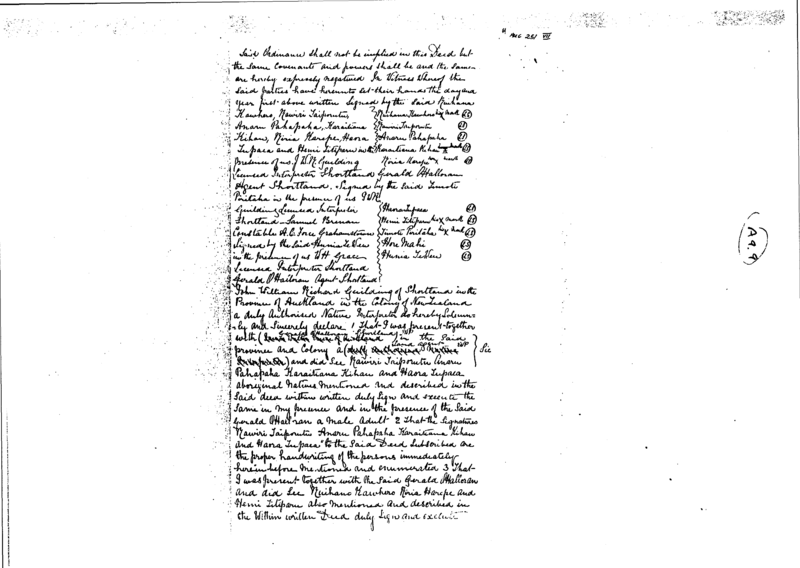 " AUG 281 VII
Said Ordinance shall not be implied in this Deed but
the same Covenants and powers shall be and the same
are hereby expressly negatived In Witness Whereof the
said parties have hereunto set their hands the day and
year first above written Signed by the said
Kawhero, Nawiri Taiporutu,
Anaru Pahapaha, Karaitiana
Kihau, Niria Harepe, Haora
Tupaea and Hemi in the
presence of us. J W R Guilding
Licensed Interpreter Shortland Gerald O'Halloran
Agent Shortland. Signed by the said
in the presence of us J W R
Guilding Licensed Interpreter
Shortland Samuel Brenan
Constable A.C. Force Grahamstown
Signed by the said Hunia Te
in the presence of us W H Grace
Licensed Interpreter Shortland
Gerald O'Halloran Agent Shortland
Kawhero his x mark
Nawiri Taiporutu
Anaru Pahapaha
Karaitiana Kihau his x mark
Niria her x mark
Haora Tupaea
Hemi his x mark
his x mark
Hore Mahi
Hunia Te
A 9. 9
John William Richard Guilding of Shortland in the
Province of Auckland in the Colony of New Zealand
a duly Authorised Native Interpreter do hereby Solemn-
-ly and Sincerely declare 1 That I was present together
with ( in the said
province and Colony a ( Sic
) and did See Nawiri Taiporutu Anaru
Pahapaha Karaitiana Kihau and Haora Tupaea
aboriginal Natives Mentioned and described in the
said deed within written duly Sign and execute the
Same in my presence and in the presence of the Said
Gerald O'Halloran a Male Adult 2 That the Signatures
Nawiri Taiporutu Anaru Pahapaha Karaitiana Kihau
and Haora Tupaea" to the Said Deed Subscribed are
the proper handwriting of the persons immediately
hereinbefore Mentioned and enumerated 3 That
I was present together with the Said Gerald O'Halloran
and did See Kawhero Niria Harepe and
Hemi also Mentioned and described in
the Within written Deed duly Sign and execute